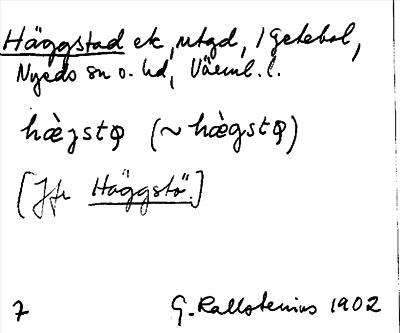 Häggstad ek, utgd, i Getebol,
Nyeds sn o. hd, Värml. l.
hæ̀gstϙ (~hæ̀gstϙ)
[Jfr Häggstö.]
7 G. Kallstenius 1902